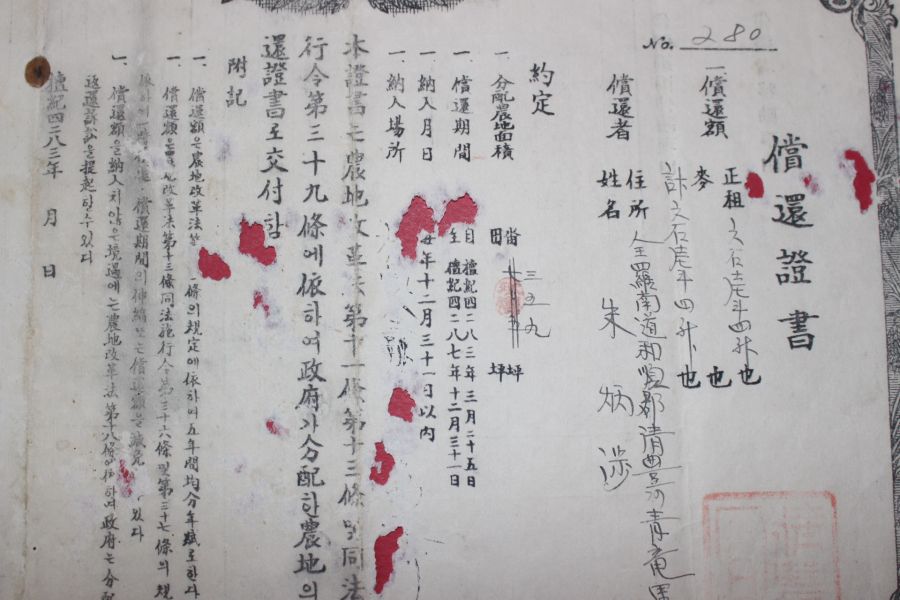 No. 280
償還證書
一償還額
正租 六石壱斗四升 也
麥 也
計 六石壱斗四升 也
償還者
住所 全羅南道和順郡清豊面青竜里
姓名 朱炳
約定
一 分配農地面積
畓 三五九 坪
田 坪
一 償還期間
自 檀紀四二八三年三月二十五日
至 檀紀四二八七年十二月三十一日
一 納入月日
每年十二月三十一日以內
一 納入場所
本證書는 農地改革法第十一條第十三條및同法
行令第三十九條에依하여政府가分配한農地의
還證書로交付함
附記
一、償還額은農地改革法第 條의規定에依하여五年間均分年賦로한다
一、償還額 改革法第十三條同法施行令第三十六條및第三十七條의規
償還期間의伸縮또는償還額을減免 있다
一、償還額을納入치않은境遇에는農地改革法第十八條에依하여政府는分配
返還訴訟을提起할수있다
檀紀四二八三年 月 日